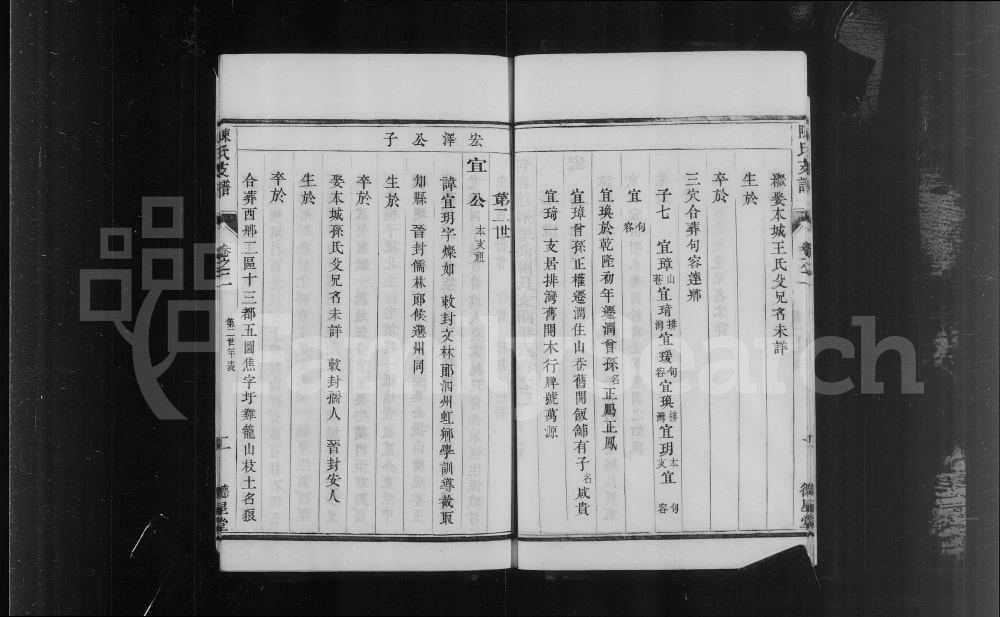 陳氏支譜
德星堂
繼娶本城王氏父兄名未詳
生於
卒於
三穴合葬句容達鄉
子七 宜璋山巷宜琦排灣宜瑗句容宜瑍排灣宜玥本支宜 句容
宜 句容
宜瑍於乾隆初年遷潤曾孫名正鵬正鳳
宜璋曾孫正權遷潤住山巷舊開飯舖有子名咸貴
宜琦一支居排灣舊開木行牌號萬源
第二世
宏澤公子
宜公本支祖
諱宜玥字燦如 敕封文林郎泗州虹鄉學訓導截取
知縣 晉封儒林郎候選州同
生於
卒於
娶本城孫氏父兄名未詳 敕封孺人 晉封安人
生於
卒於
合葬西鄉二區十三都五圖焦字圩雞籠山枝土名狼
陳氏支譜
卷之二
第二世年表
二
德星堂
FamilySearch